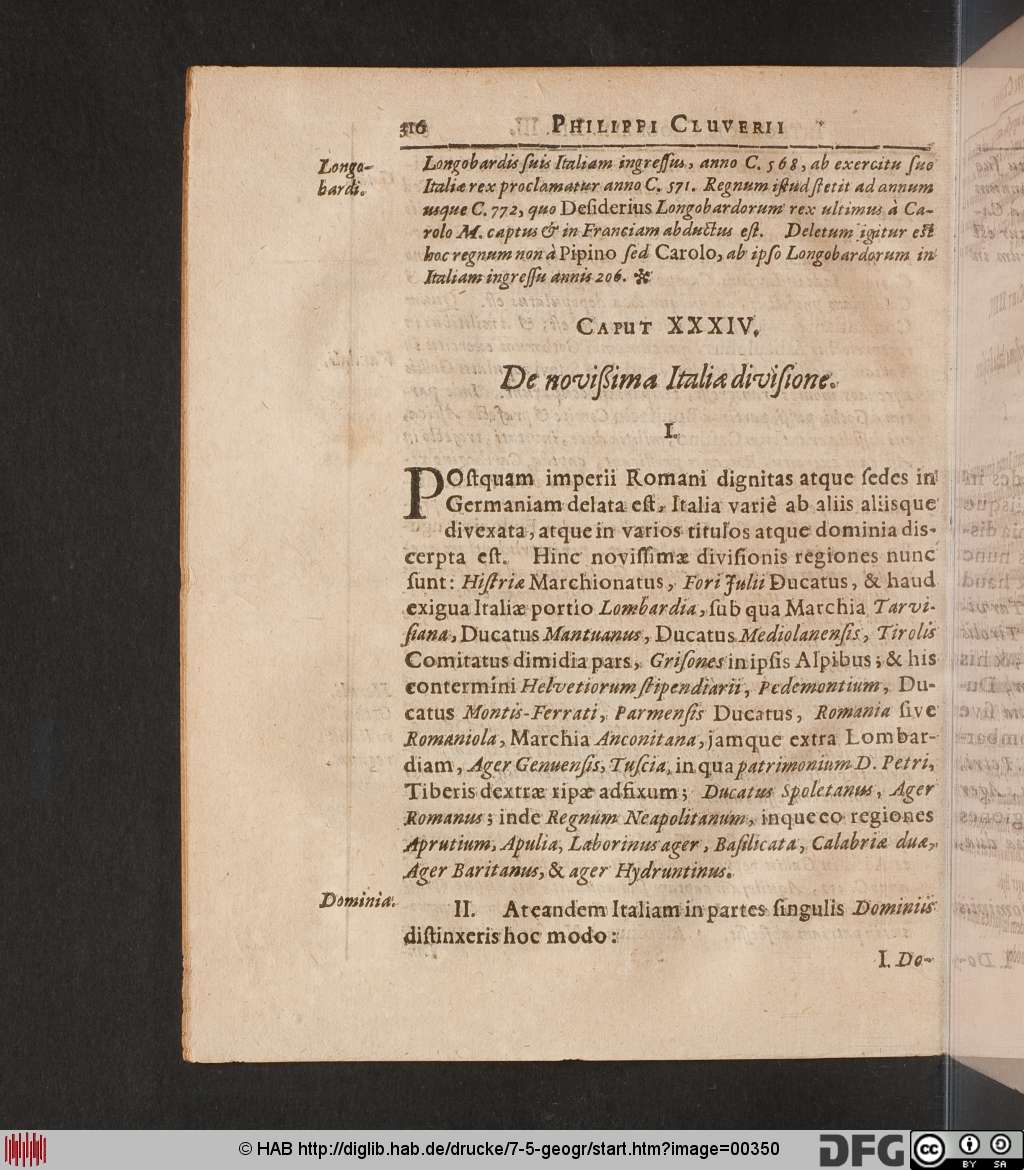 316 PHILIPPI CLUVERII
Longo-
bardi.
Longobardis ſuis Italiam ingreſſus, anno C. 568, ab exercitu ſuo
Italiæ rex proclamatur anno C. 571. Regnum iſtud ſtetit ad annum
usque C. 772, quo Deſiderius Longobardorum rex ultimus à Ca-
rolo M. captus & in Franciam abductus eſt. Deletum igitur eſt
hoc regnum non à Pipino ſed Carolo, ab ipſo Longobardorum in
Italiam ingreſſu annis 206. ✻
CAPUT XXXIV.
De novißima Italiæ diviſione.
I.
POſtquam imperii Romani dignitas atque ſedes in
Germaniam delata eſt, Italia variè ab aliis aliisque
divexata, atque in varios titulos atque dominia dis-
cerpta eſt. Hinc noviſſimæ diviſionis regiones nunc
ſunt: Hiſtriæ Marchionatus, Fori Julii Ducatus, & haud
exigua Italiæ portio Lombardia, ſub qua Marchia Tarvi-
ſiana, Ducatus Mantuanus, Ducatus Mediolanenſis, Tirolis
Comitatus dimidia pars, Griſones in ipſis Alpibus; & his
contermini Helvetiorum ſtipendiarii, Pedemontium, Du-
catus Montis-Ferrati, Parmenſis Ducatus, Romania ſive
Romaniola, Marchia Anconitana, jamque extra Lombar-
diam, Ager Genuenſis, Tuſcia, in qua patrimonium D. Petri,
Tiberis dextræ ripæ adfixum; Ducatus Spoletanus, Ager
Romanus; inde Regnum Neapolitanum, inque eo regiones
Aprutium, Apulia, Laborinus ager, Baſilicata, Calabriæ duæ,
Ager Baritanus, & ager Hydruntinus.
Dominia.
II. At eandem Italiam in partes ſingulis Dominiis
diſtinxeris hoc modo:
I. Do-
© HAB http://diglib.hab.de/drucke/7-5-geogr/start.htm?image=00350
DFG
cc BY SA